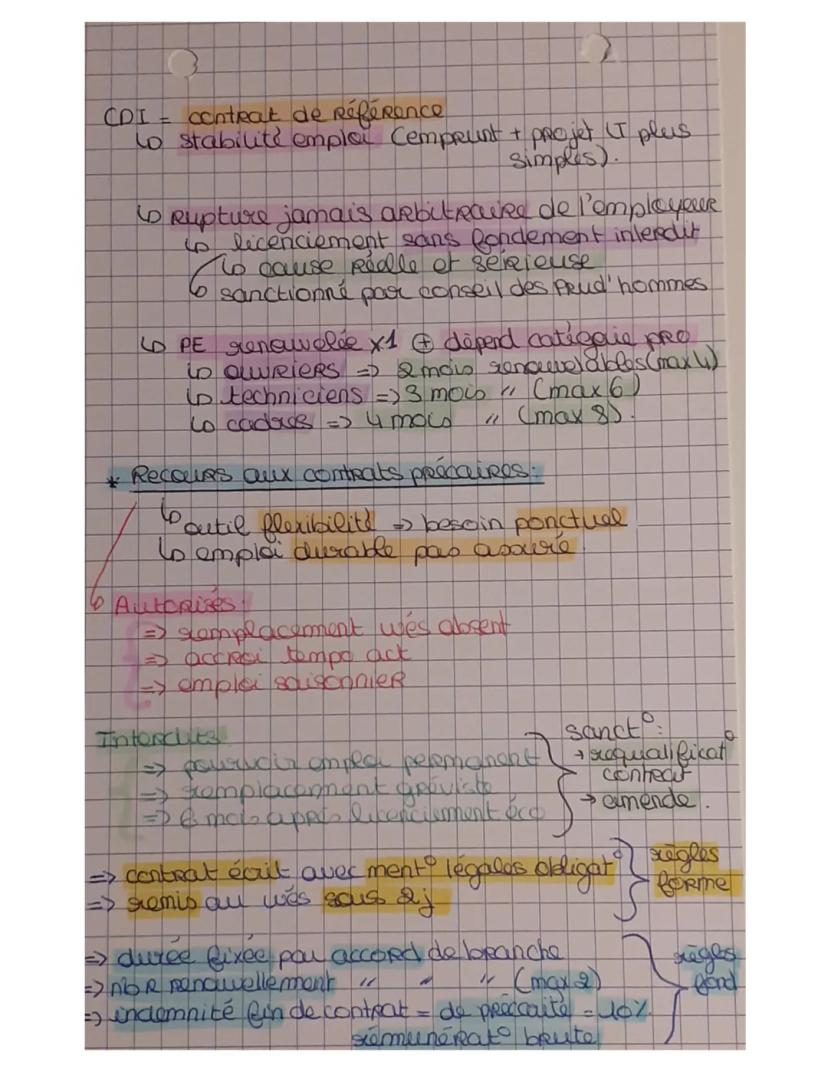 CDI = contrat de référence
↳ stabilité emploi (emprunt + projet LT plus
simples).
↳ rupture jamais arbitraire de l'employeur
↳ licenciement sans fondement interdit
↳ cause réelle et sérieuse
↳ sanctionné par conseil des prud'hommes
↳ PE renouvelée x1 ⊕ dépend catégorie pro
↳ ouvriers => 2 mois renouvelables (max 4)
↳ techniciens => 3 mois " (max 6)
↳ cadres => 4 mois " (max 8).
* Recours aux contrats précaires:
↳ outil flexibilité => besoin ponctuel
↳ emploi durable pas assuré.
↳ Autorisés:
=> remplacement absent
=> accroi tempo act
=> emploi saisonnier
Interdits
=> pourvoir emploi permanent
=> remplacement gréviste
=> 6 mois après licenciement éco
sanct°:
→ requalificat°
contrat
→ amende.
=> contrat écrit avec ment° légales obligat°
=> remis au sous 2j
règles
forme
=> durée fixée par accord de branche
=> nbr renouvellement " " " (max 2)
=> indemnité fin de contrat = de précarité = 10%
rémunérat° brute
règles
fond